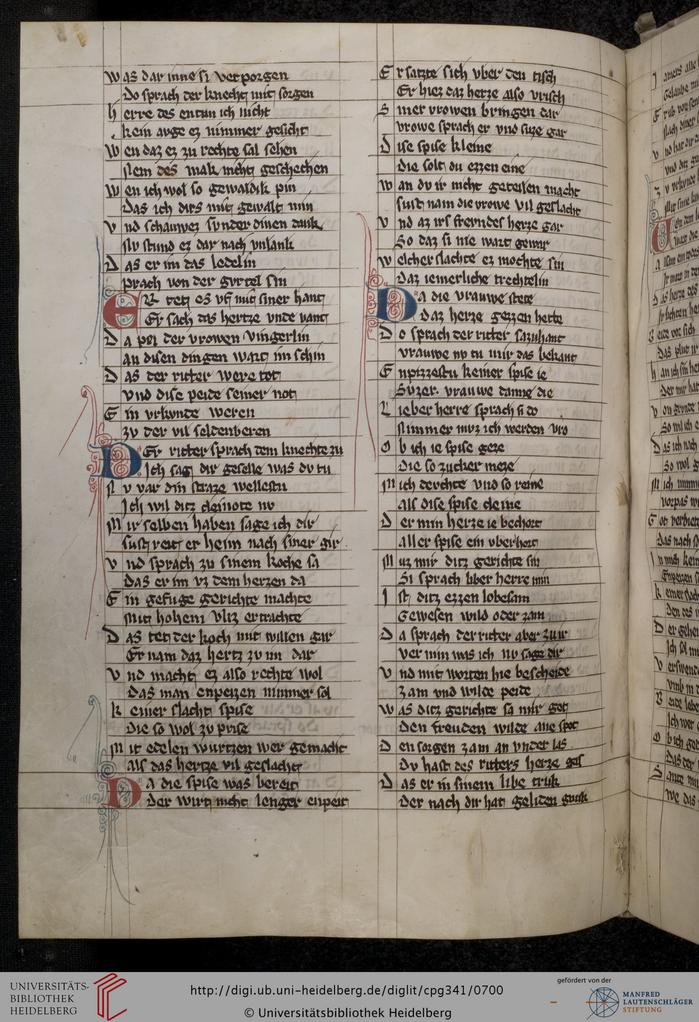 Was dar inne si verporgen
Do sprach der knecht mit sorgen
Herre des entun ich nicht
kein avge ez nimmer gesicht
Wen daz ez zu rechte sal sehen
Nem des mak nicht geschechen
Wen ich wol so gewaldik pin
Das ich dirs mit gewalt nim
Vnd schauwez svnder dinen dank
Nv stund ez dar nach vnlank
Das er im das ledelin
prach von der gvrtel sin
ER tet es vf mit siner hant
Er sach das hertze vnde vant
Da pei der vrowen vingerlin
an disen dingen wart im schin
Das der ritter were tot
vnd dise peide seiner not
Ein vrkvnde weren
zv der vil seldenberen
DEr ritter sprach dem knechte zu
Ich sag dir geselle was dv tu
Nv var din straze wellestu
Ich wil ditz cleinote nv
Mir selben haben sage ich dir
sust reit er heim nach siner gir
Vnd sprach zu sinem koche sa
Das er im vz dem herzen da
Ein gefuge gerichte machte
Mit hohem vliz ertrachte
Das tet der koch mit willen gar
Er nam daz hertz zv im dar
Vnd macht ez also rechte wol
Das man enpeizen nimmer sol
Keiner slacht spise
die so wol zv prise
Mit edelen wurtzen wer gemacht
als das hertze vil geslacht
Da die spise was bereit
Der wirt nicht lenger enpeit
Er satzte sich vber den tisch
Er hiez daz herze also vrisch
Siner vrowen bringen dar
vrowe sprach er vnd suze gar
Dise spise kleine
die solt du ezzen eine
Wan du ir nicht geteilen macht
sust nam die vrowe vil geslacht
Vnd az irs frevndes herze gar
So daz si nie wart gewar
Welcher slachte ez mochte sin
Daz iemerliche trechtelin
Da die vrauwe stete
Daz herze gezzen hette
Do sprach der ritter sazuhant
vrauwe nv tu mir das bekant
Enpizzestu keiner spise ie
Svzer vrauwe danne die
Lieber herre sprach si do
Nimmer mvz ich werden vro
Ob ich ie spise geze
die so zucher meze
Mich devchte vnd so reine
als dise spise cleine
Der min herze ie bechort
aller spise ein vberhort
Muz mir ditz gerichte sin
Si sprach liber herre min
Ist ditz ezzen lobesam
Gewesen wild oder zam
Da sprach der ritter aber zu ir
Vernim was ich nv sage dir
Vnd mit worten hie bescheide
Zam vnd wilde peide
Was ditz gerichte sa mir got
Den freuden wilde ane spot
Den sorgen zam an vnder las
Dv hast des ritters herze gas
Das er in sinem libe truk
Der nach dir hat geliden gnuk
UNIVERSITÄTS-
BIBLIOTHEK
HEIDELBERG
http://digi.ub.uni-heidelberg.de/diglit/cpg341/0700
© Universitätsbibliothek Heidelberg
gefördert von der
MANFRED
LAUTENSCHLÄGER
STIFTUNG